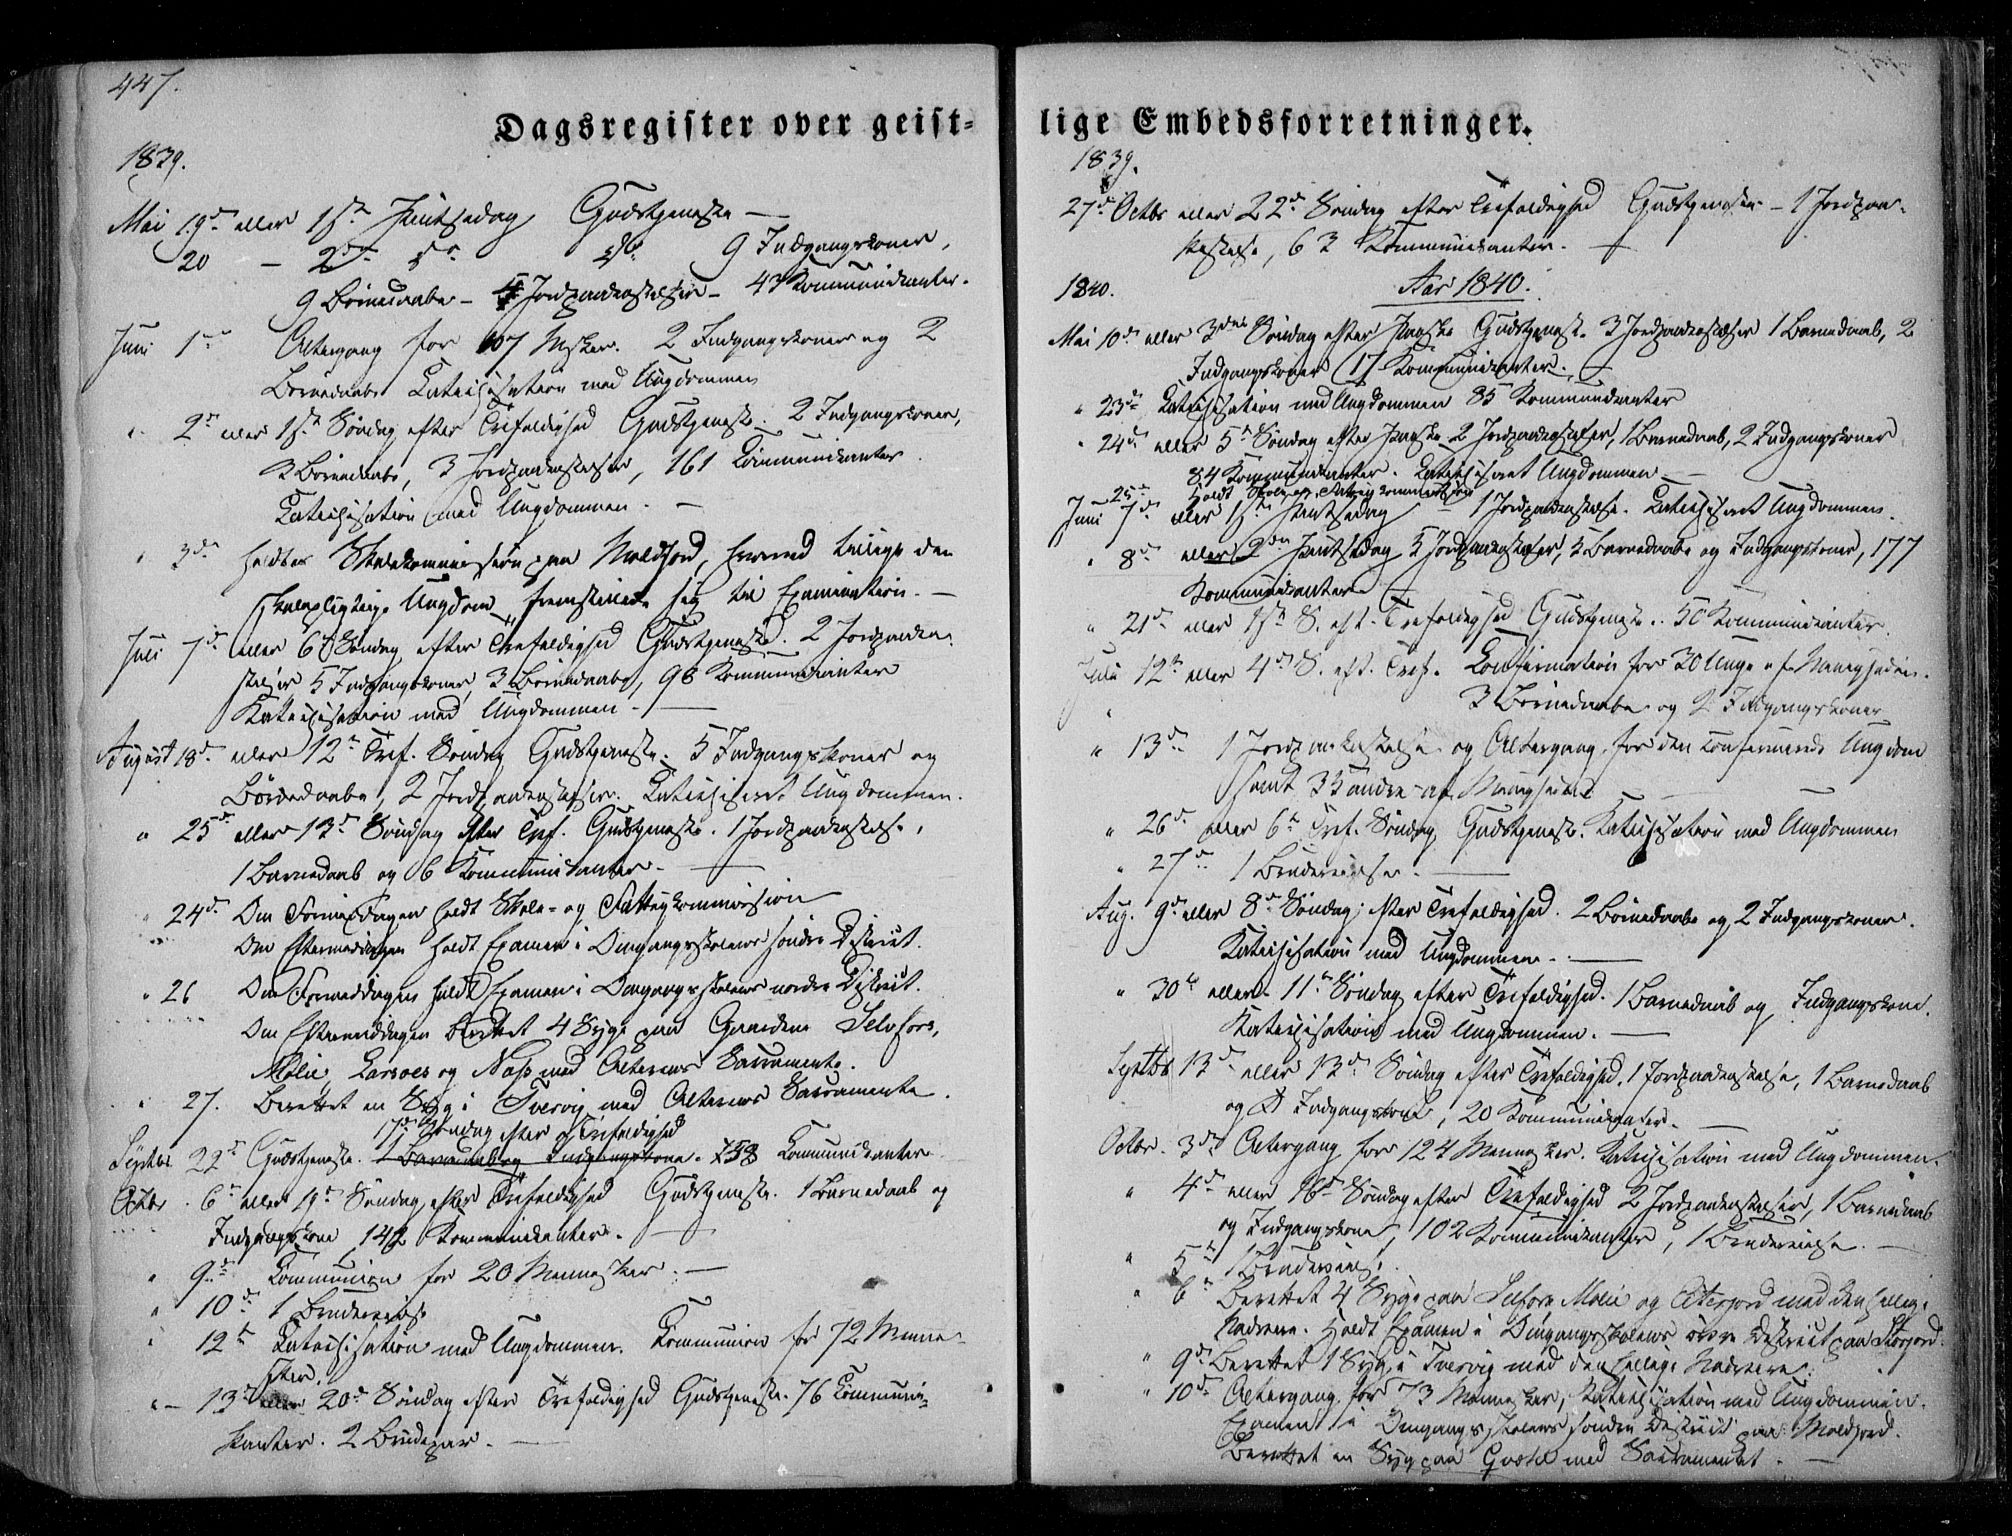 447.
Dagsregister over geist-
1839.
Mai 19de eller 1ste Pintsedag Gudstjeneste —
20 — 2den do do 9 Indgangskoner,
9 Børnedaabe — 4 Jordpaakastelser — 47 Kommunikanter.
Juni 1ste Altergang for 107 Msker. 2 Indgangskoner og 2
Børnedaabe Katechisation med Ungdommen
" 2den eller 1ste Søndag efter Trefoldighed Gudstjeneste — 2 Indgangskoner,
3 Børnedaabe, 3 Jordpaakastelser, 161 Communikanter.
Katechisation med Ungdommen. —
" 3de holdtes Skolekommission paa Moldjord, hvorved tillige den
skolepligtige Ungdom fremstillede sig til Examination. —
Juli 7de eller 6te Søndag efter Trefoldighed Gudstjeneste. 2 Jordpaaka-
stelser 5 Indgangskoner, 3 Børnedaabe, 98 Kommunikanter
Katechisation med Ungdommen. —
August 18de eller 12te Tref. Søndag Gudstjeneste. 5 Indgangskoner og
Børnedaabe, 2 Jordpaakastelser. Katechiseret Ungdommen.
" 25de eller 13de Søndag efter Tref. Gudstjeneste. 1 Jordpaakastelse,
1 Barnedaab og 6 Kommunikanter. —
" 24de Om Formiddagen holdt Skole- og Fattigkommission
Om Eftermiddagen holdt Examen i Omgangsskolens søndre District.
" 26 Om Formiddagen holdt Examen i Omgangsskolens nordre District.
Om Eftermiddagen berettet 4 Syge paa Gaardene Selfors,
Molid, Larsoes og Næss med Alterens Sacramente.
" 27. Berettet en Syg i Tversvig med Alterens Sacramente.
17de Søndag efter Trefoldighed
Septbr. 22de Gudstjeneste. 1 Barnedaab og Indgangskone. 158 Communikanter
Octbr. 6te eller 19de Søndag efter Trefoldighed Gudstjeneste. 1 Barnedaab og
Indgangskone 142 Kommunikanter. —
" 9de Communion for 20 Mennesker. —
" 10de 1 Brudevielse
" 12te Katechisation med Ungdommen. Communion for 72 Menne-
sker.
" — 13de eller 20de Søndag efter Trefoldighed Gudstjeneste. 76 Communi-
kanter. 2 Brudepar. —
lige Embedsforretninger.
1839.
27de Octbr eller 22de Søndag efter Trefoldighed Gudstjeneste — 1 Jordpaa-
kastelse, 63 Kommunikanter. —
1840. Aar 1840.
Mai 10de eller 3die Søndag efter Paaske Gudstjeneste. 3 Jordpaakastelser 1 Barnedaab, 2
Indgangskoner 17 Kommunikanter. —
" 23de Katechisation med Ungdommen 85 Kommunikanter
" 24de eller 5te Søndag efter Paaske 2 Jordpaakastelser, 1 Barnedaab, 2 Indgangskoner
84 Kommunikanter. Katechiseret Ungdommen —
— 25de Holdt Skole og Fattigkommission
Juni 7de eller 1ste Pintsedag — 1 Jordpaakastelse. Katechiseret Ungdommen.
" 8de eller 2den Pintsedag 5 Jordpaakastelser, 5 Barnedaabe og Indgangskoner, 177
Kommunikanter —
" 21de eller 1ste S. eft. Trefoldighed Gudstjeneste. 50 Kommunikanter.
Juli 12te eller 4de S. eft. Tref. Confirmation for 30 Unge af Menigheden.
" 3 Børnedaabe og 2 Indgangskoner
" 13de 1 Jordpaakastelse og Altergang for den confirmerede Ungdom
samt 33 andre af Menigheden
" 26de eller 6te Tref. Søndag Gudstjeneste. Katechisation med Ungdommen
" 27de 1 Brudevielse. —
Aug. 9de eller 8de Søndag efter Trefoldighed. 2 Børnedaabe og 2 Indgangskoner.
Katechisation med Ungdommen. —
" 30te eller 11te Søndag efter Trefoldighed. 1 Barnedaab og Indgangskone.
Katechisation med Ungdommen. —
Septbr 13de eller 13de Søndag efter Trefoldighed. 1 Jordpaakastelse, 1 Barnedaab
og Indgangskone, 20 Kommunikanter. —
Octbr. 3de Altergang for 124 Mennesker. Katechisation med Ungdommen.
" 4de eller 16de Søndag efter Trefoldighed 2 Jordpaakastelser, 1 Barnedaab
og Indgangskone, 102 Kommunikanter, 1 Brudevielse. —
" 5te 1 Brudevielse.
" 6te Berettet 4 Syge paa Selfors Molid og Aterjord med den hellige
Nadvere. Holdt Examen i Omgangsskolens District paa Storjord.
" 9de Berettet 1 Syg i Tversvig med den hellige Nadvere.
" 10de Altergang for 73 Mennesker, Katechisation med Ungdommen.
Examen i Omgangsskolens søndre District paa Moldjord.
Berettet en Syg paa med Sacramentet. —